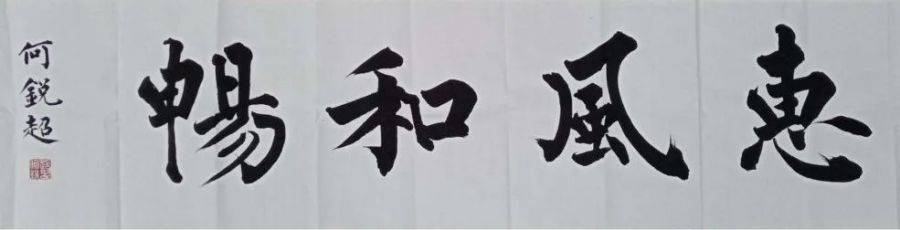 惠風和暢
何銳超